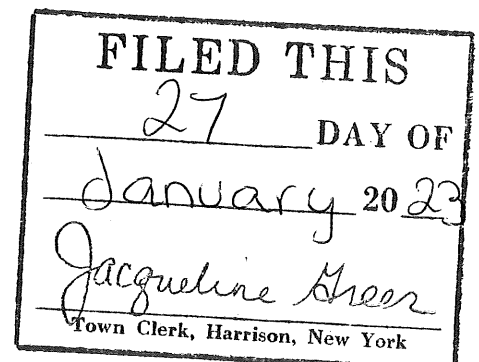 FILED THIS
27 DAY OF
January 20 23
Jacqueline Greer
Town Clerk, Harrison, New York